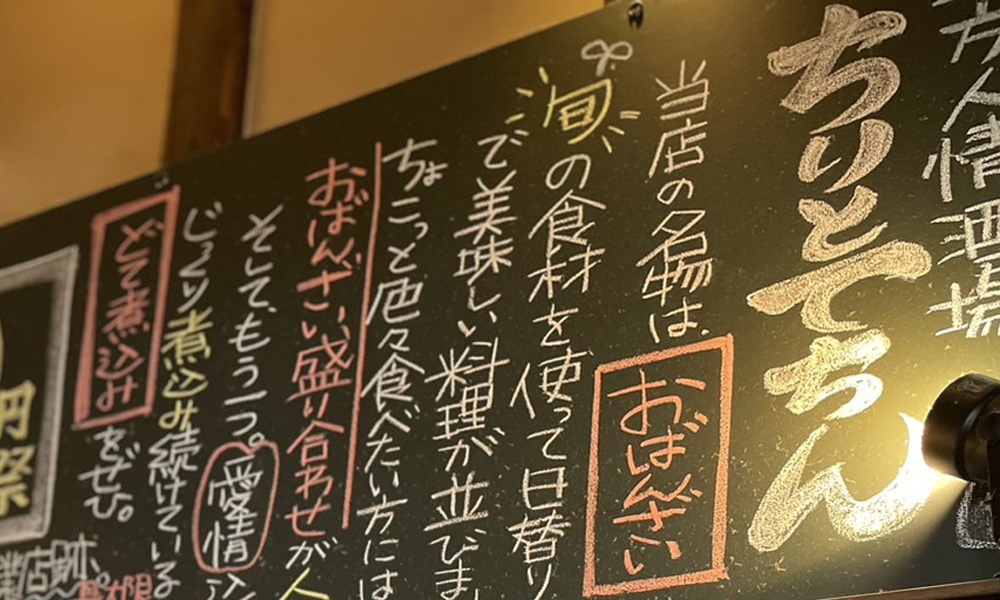 方人情酒場
ちりとてちん
当店の名物は、おばんざい
旬の食材を使って日替り
で美味しい料理が並びま
ちょこっと色々食べたい方には
おばんざい盛り合わせが人
そして、もう一つ。愛情込
じっくり煮込み続けている
どて煮込みをぜひ。
円祭
業店跡。